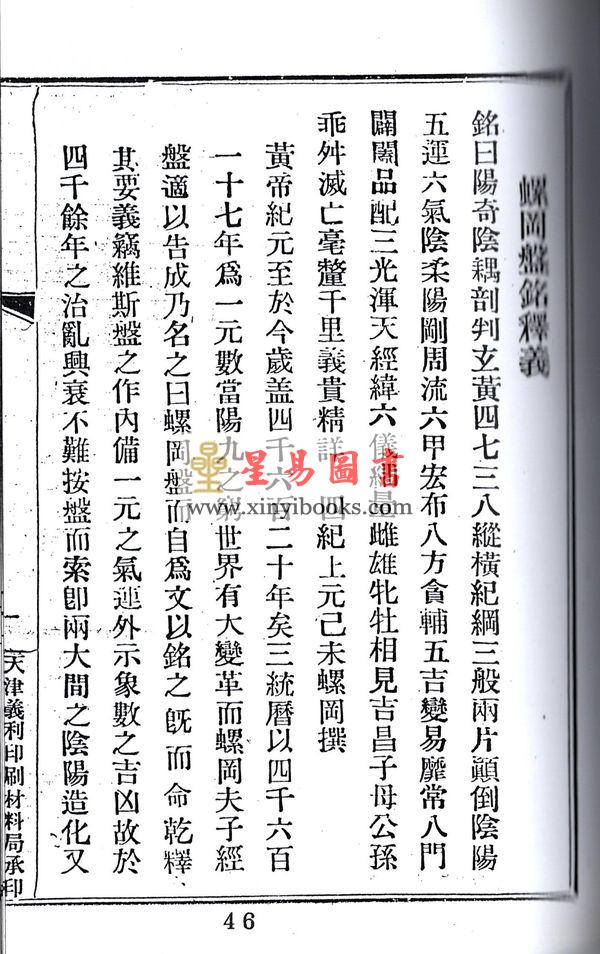 螺岡盤銘釋義
銘曰陽奇陰耦剖判玄黃四七三八縱橫紀綱三般兩片顛倒陰陽
五運六氣陰柔陽剛周流六甲宏布八方貪輔五吉變易靡常八門
闢闔品配三光渾天經緯六儀 雌雄牝牡相見吉昌子母公孫
乖舛滅亡毫釐千里義貴精詳 四紀上元己未螺岡撰
黃帝紀元至於今歲盖四千六百二十年矣三統曆以四千六百
一十七年爲一元數當陽九之窮世界有大變革而螺岡夫子經
盤適以告成乃名之曰螺岡盤而自爲文以銘之旣而命乾釋
其要義竊維斯盤之作內備一元之氣運外示象數之吉凶故於
四千餘年之治亂興衰不難按盤而索卽兩大間之陰陽造化又
一
天津義利印刷材料局承印
星易圖書
www.xinyibooks.com
46